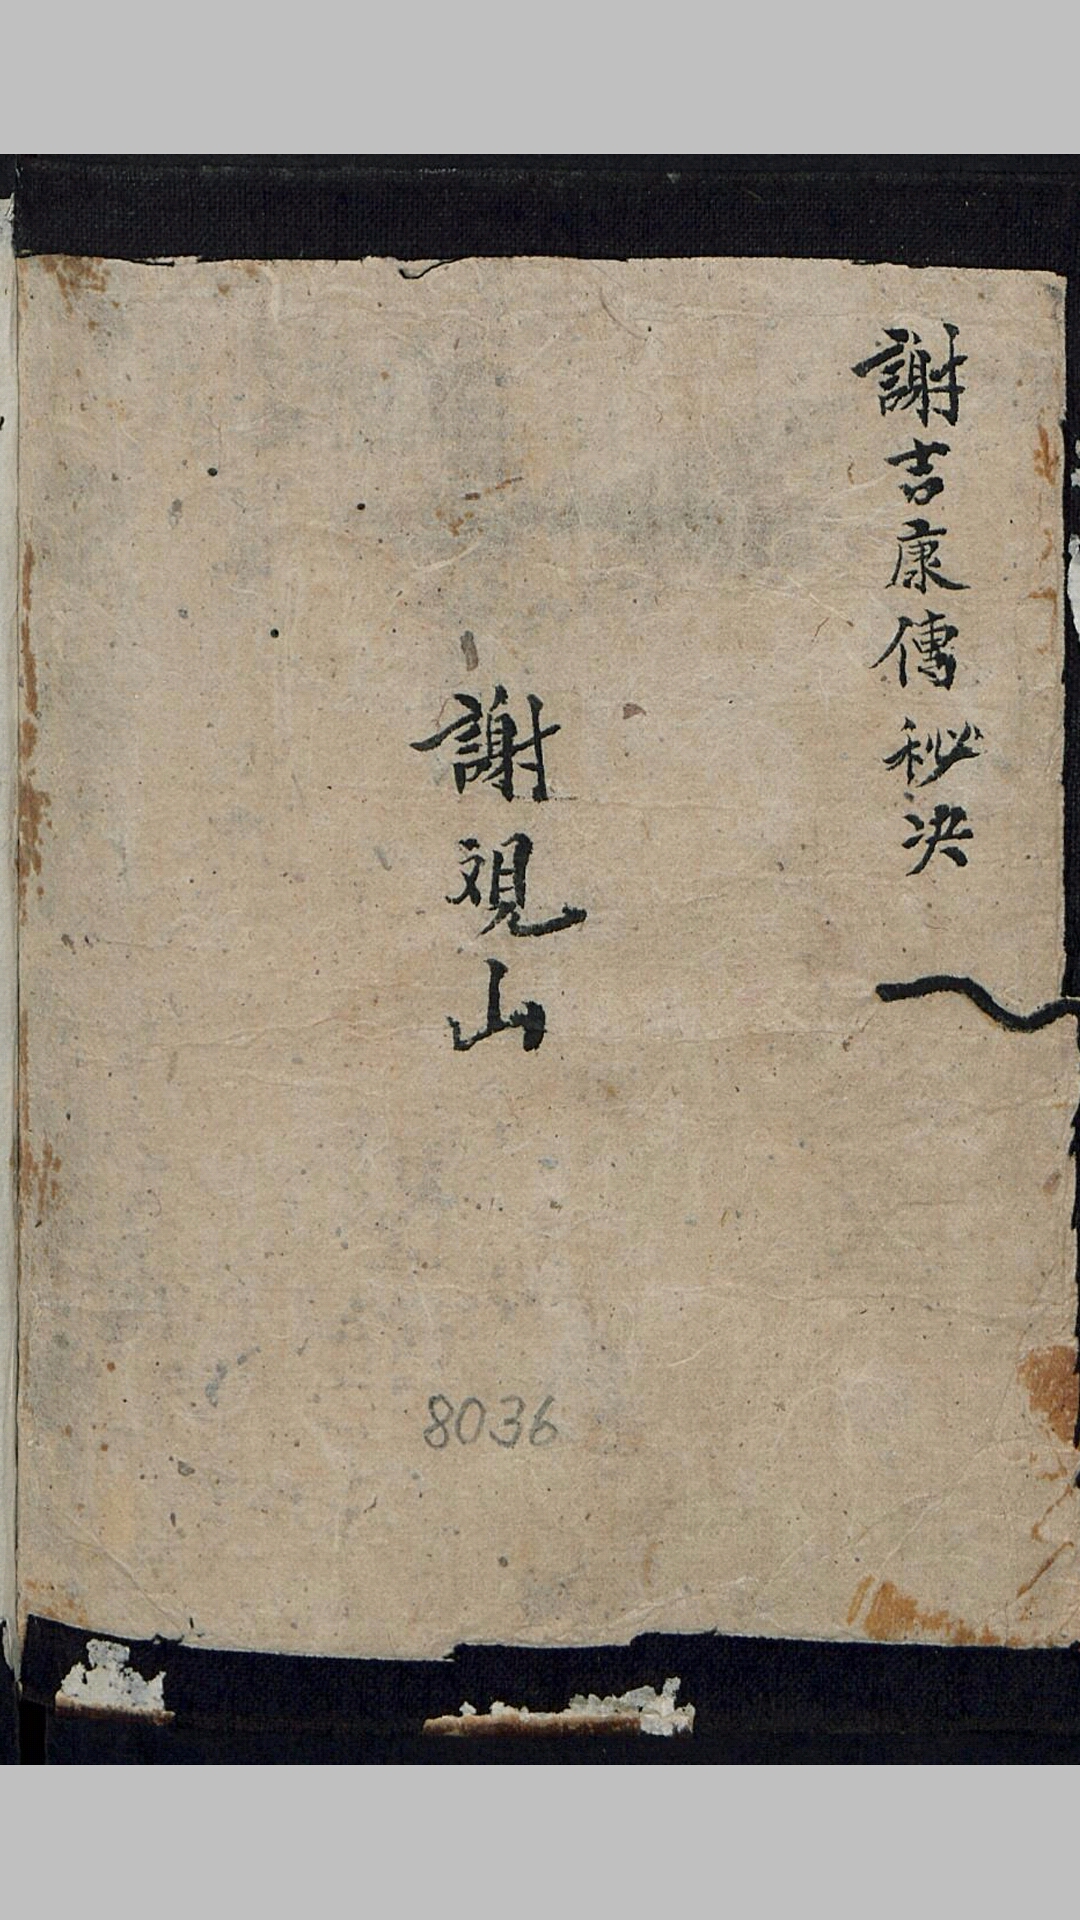 謝吉康傳秘决
謝覌山
8036